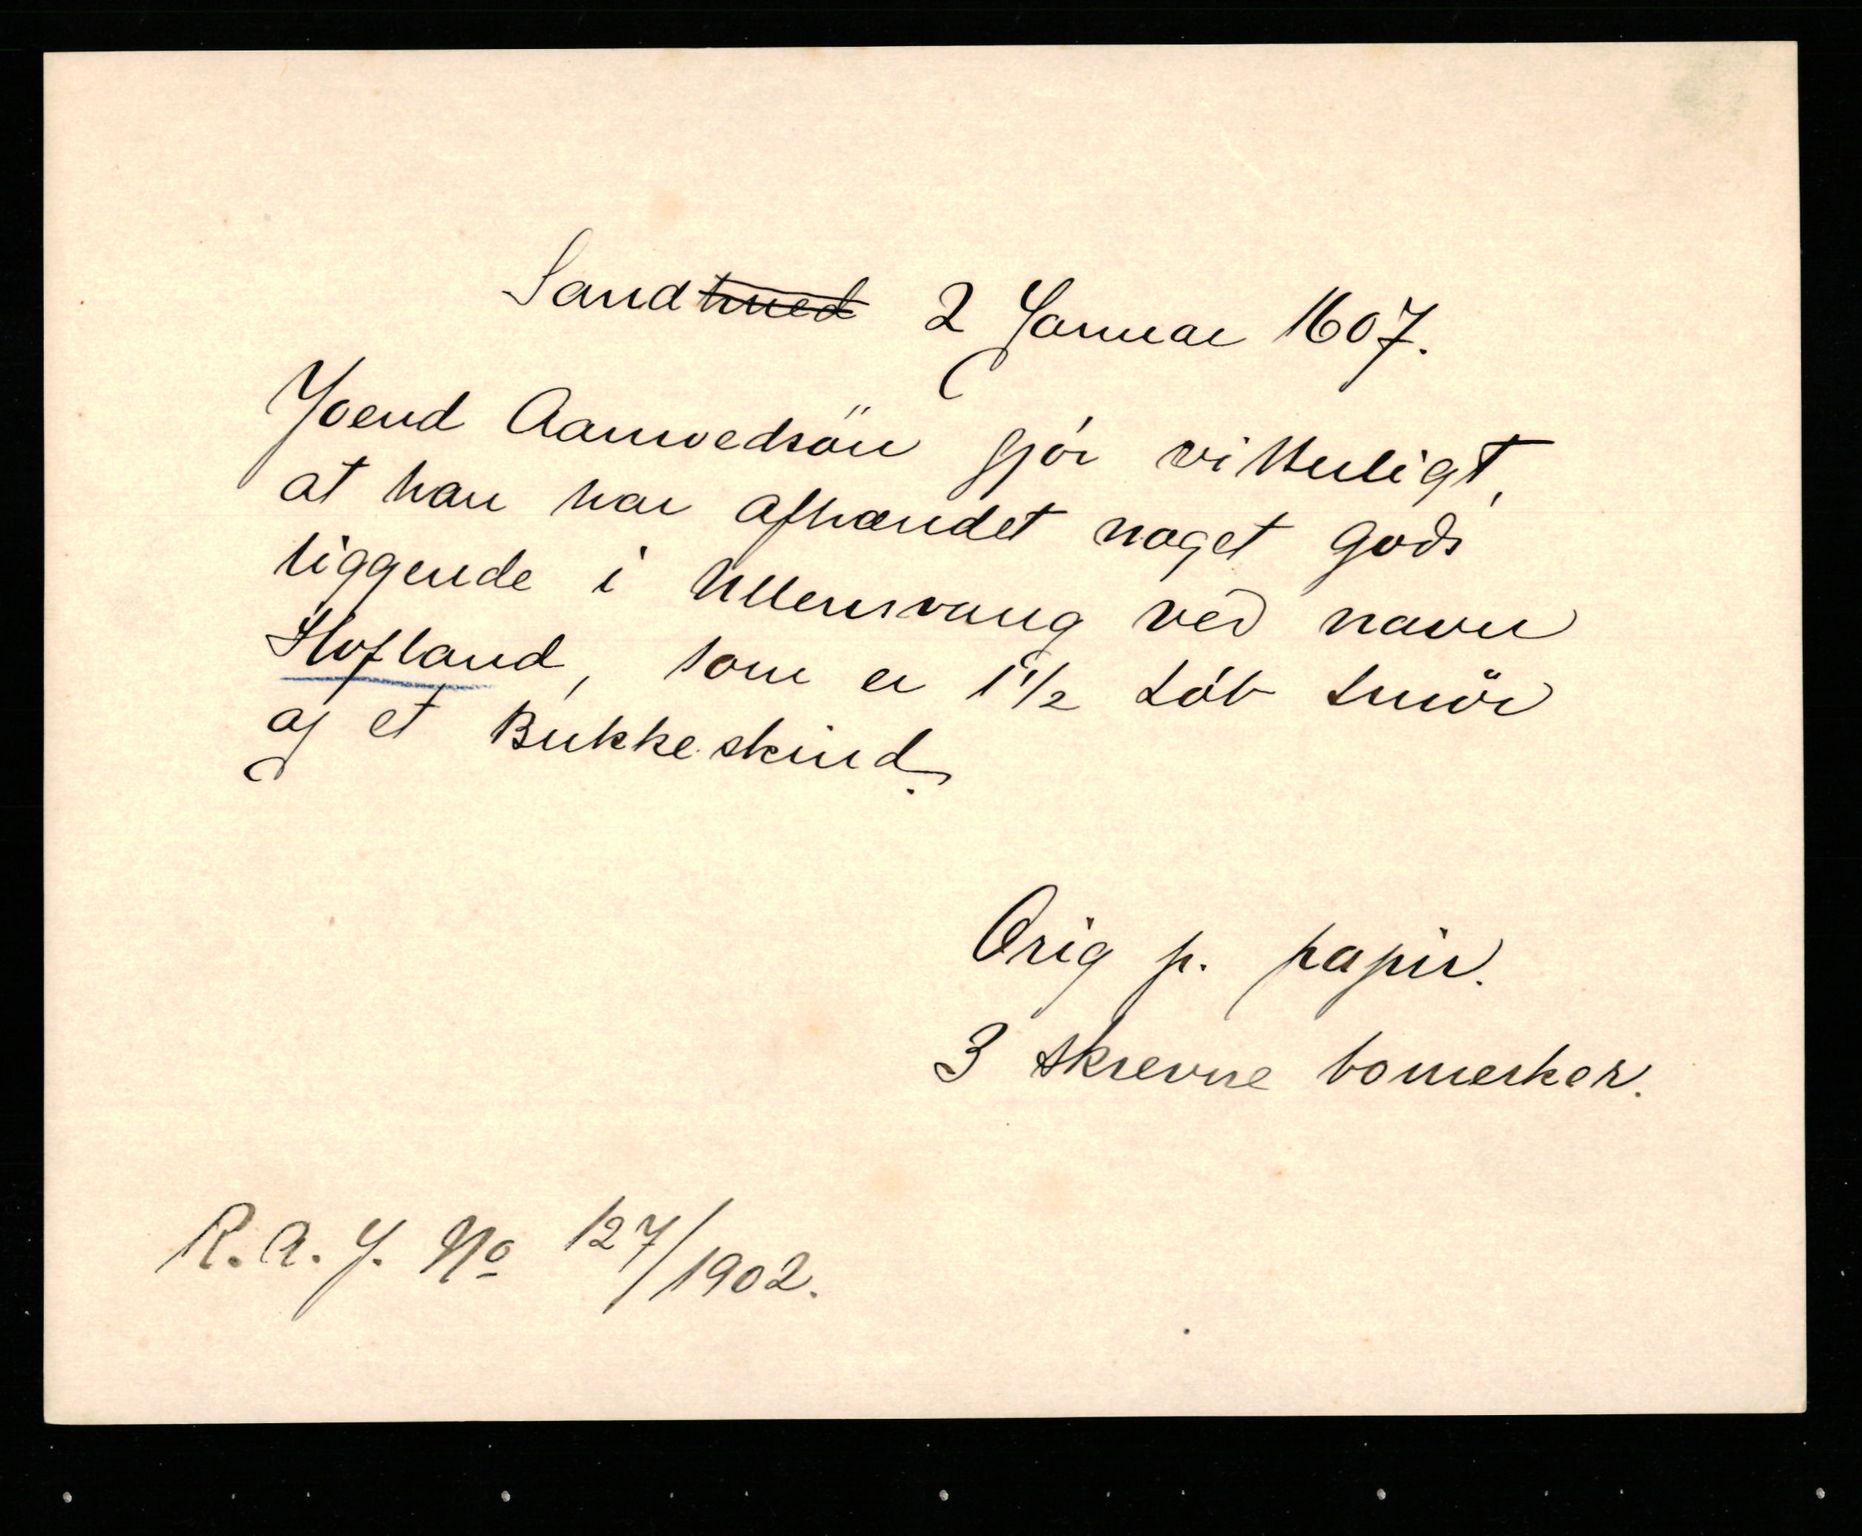 Sand 2 Januar 1607.
Joend Aamvedsön gjör vitterligt,
at han har afhændet noget Gods
liggende i Ullensvang ved navn
Hofland, som er 1 1/2 Löb Smör
og et Bukkeskind.
Orig p. papir.
3 skrevne bomerker.
R. A. J. No 127/1902.